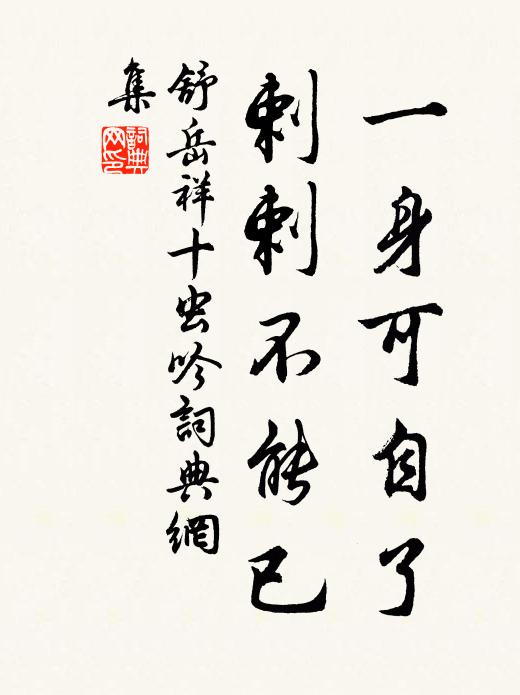 一身可自了
刺刺不能已
舒岳祥十虫吟詞典網
集
詞典網印